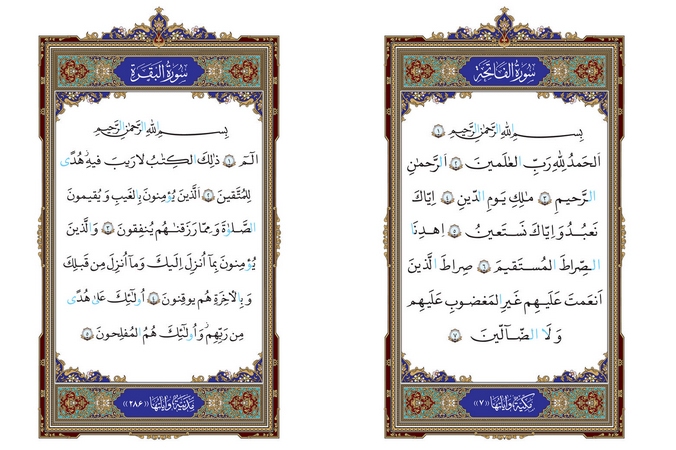 سُورَةُ الفَاتِحَةِ
بِسمِ اللهِ الرَّحمٰنِ الرَّحيمِ ﴿١﴾
اَلحَمدُ لِلّٰهِ رَبِّ العٰلَمينَ ﴿٢﴾ اَلرَّحمٰنِ
الرَّحيمِ ﴿٣﴾ مٰلِكِ يَومِ الدّينِ ﴿٤﴾ اِيّاكَ
نَعبُدُ وَ اِيّاكَ نَستَعينُ ﴿٥﴾ اِهدِنَا
الصِّراطَ المُستَقيمَ ﴿٦﴾ صِراطَ الَّذينَ
اَنعَمتَ عَلَيهِم غَيرِ المَغضوبِ عَلَيهِم
وَ لَا الضّآلّينَ ﴿٧﴾
مَكِّيَّةٌ وَ آيَاتُهَا ((٧))
سُورَةُ البَقَرَةِ
بِسمِ اللهِ الرَّحمٰنِ الرَّحيمِ
الٓمٓ ﴿١﴾ ذٰلِكَ الكِتٰبُ لا رَيبَ فيهِ ۛ هُدًى
لِلمُتَّقينَ ﴿٢﴾ اَلَّذينَ يُؤمِنونَ بِالغَيبِ وَ يُقيمونَ
الصَّلوٰةَ وَ مِمّا رَزَقنٰهُم يُنفِقونَ ﴿٣﴾ وَ الَّذينَ
يُؤمِنونَ بِمآ اُنزِلَ اِلَيكَ وَ مآ اُنزِلَ مِن قَبلِكَ
وَ بِالأخِرَةِ هُم يوقِنونَ ﴿٤﴾ اُولٰئِكَ عَلىٰ هُدًى
مِن رَبِّهِم ۖ وَ اُولٰئِكَ هُمُ المُفلِحونَ ﴿٥﴾
مَدَنِيَّةٌ وَ آيَاتُهَا ((٢٨٦))